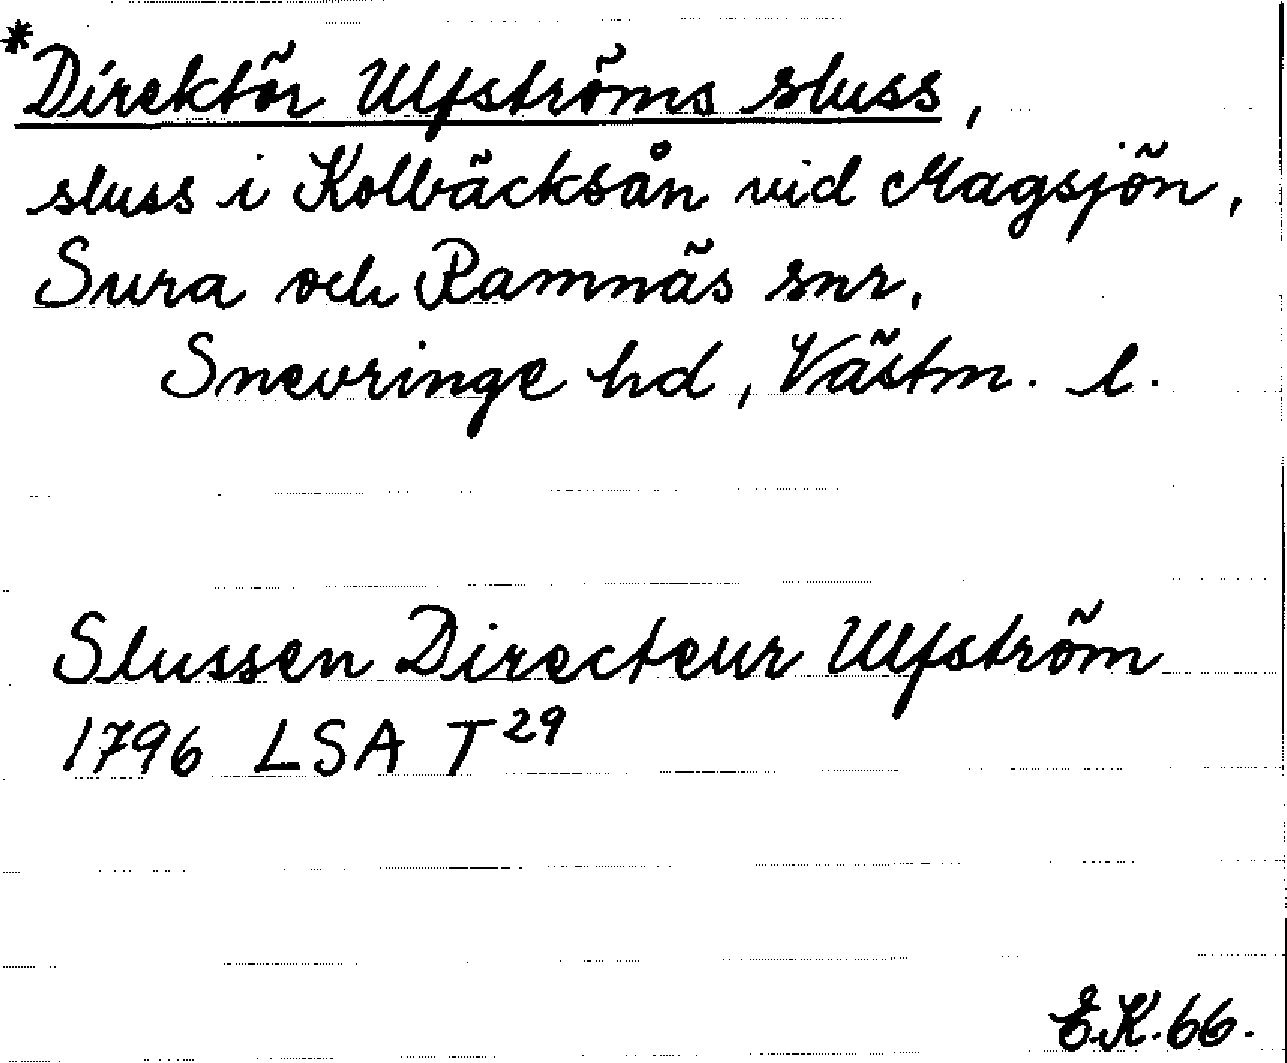 *Direktör Ulfströms sluss,
sluss i Kolbäcksån vid Magsjön,
Sura och Ramnäs snr,
Snevringe hd, Västm. l.
Slussen Directeur Ulfström
1796 LSA T²⁹
E.K. 66.